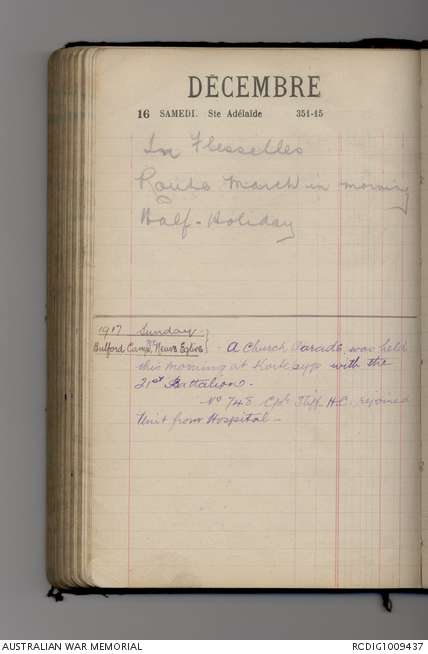 DÉCEMBRE
16 SAMEDI. Ste Adélaïde 351-15
In Flesselles
Route March in morning
Half-Holiday
1917 Sunday
Bulford Camp, Neuve Eglise } - A Church Parade was held
this morning at Kortepyp with the
21st Battalion -
- No 748 Cpl H.C. rejoined
Unit from Hospital -
AUSTRALIAN WAR MEMORIAL
RCDIG1009437